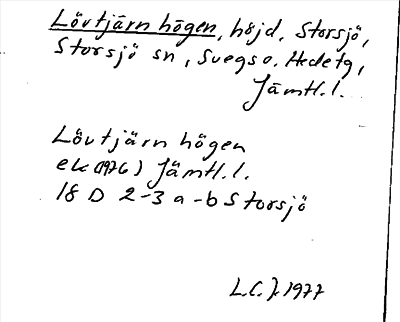 Lövtjärn högen, höjd, Storsjö,
Storsjö sn, Svegs o. Hedetg,
Jämtl.l.
Lövtjärn högen
ek (1976) Jämtl.l.
18 D 2-3 a-b Storsjö
L.C.J. 1977